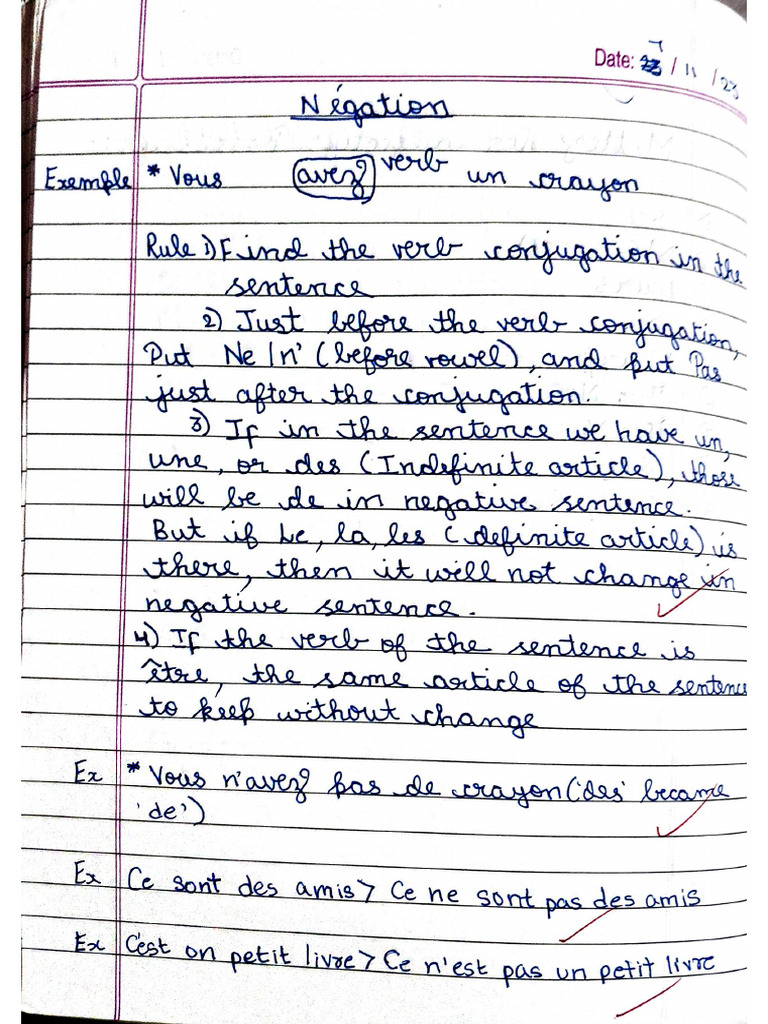 Date: 7/11/23
Négation
Exemple * Vous avez verb un crayon
Rule 1) Find the verb conjugation in the
sentence
2) Just before the verb conjugation,
Put Ne/n' (before vowel), and put Pas
just after the conjugation.
3) If in the sentence we have un,
une, or des (Indefinite article), those
will be de in negative sentence.
But if Le, la, les (definite article) is
there, then it will not change in
negative sentence.
4) If the verb of the sentence is
être, the same article of the sentence
to keep without change
Ex * Vous n'avez pas de crayon ('des' became
'de')
Ex Ce sont des amis > Ce ne sont pas des amis
Ex C'est on petit livre > Ce n'est pas un petit livre